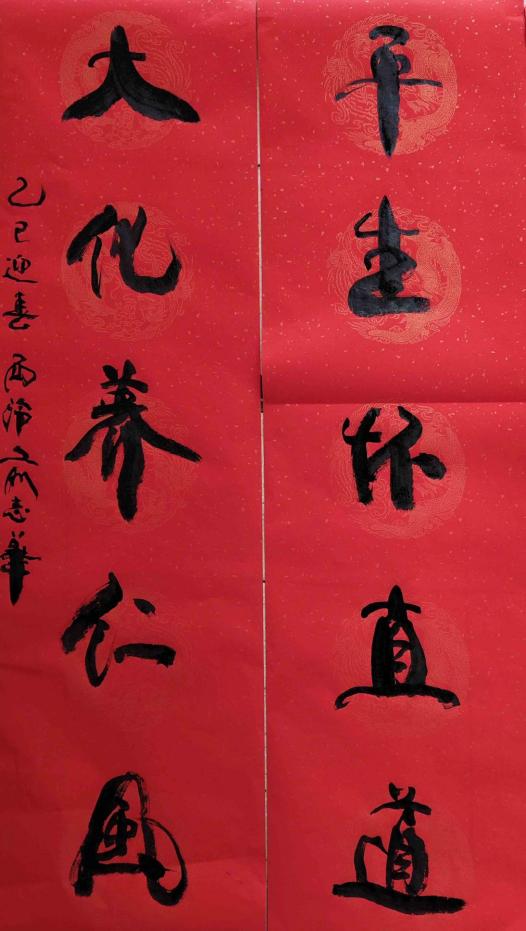 平生怀直道
大化养仁风
乙巳迎春 西泠俞志华